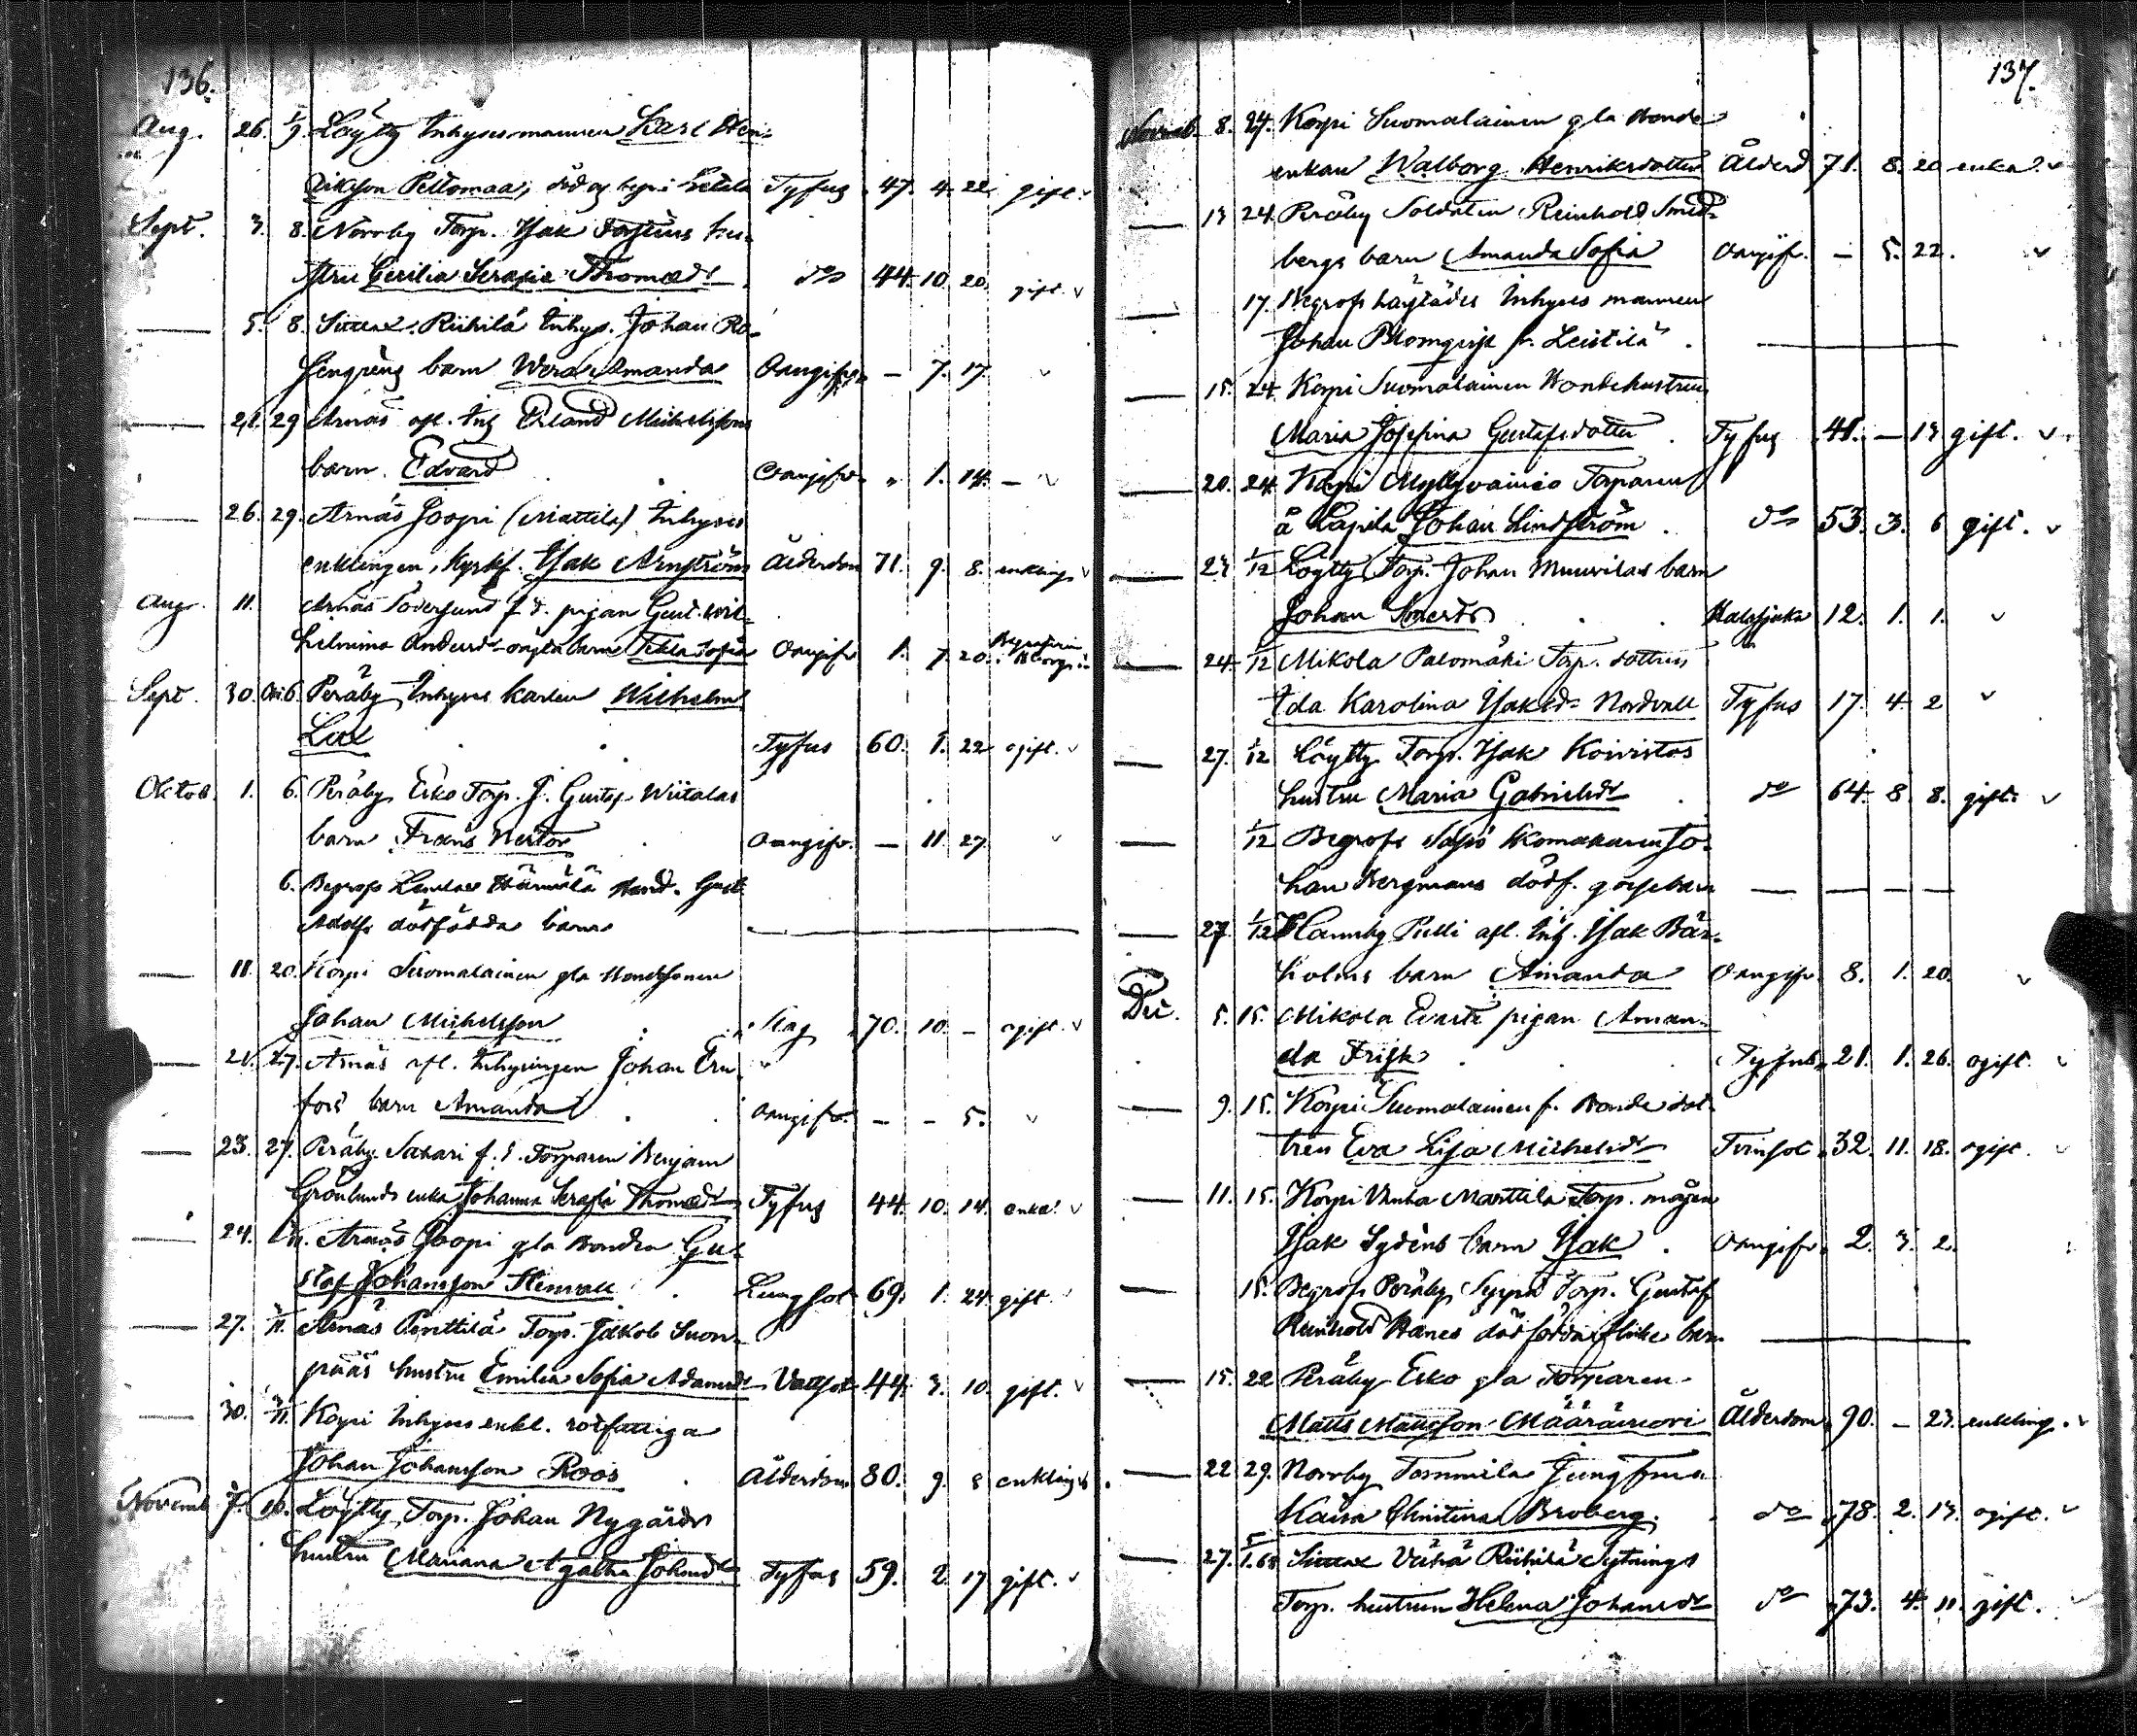 136.
Aug. 26. 1/9. Löytty Inhysesmannen Karl Hen-
rikson Peltomaa, död og begr. i Letala Tyfus 47. 4. 22. gift.
Sept. 3. 8. Norrby Torp. Isak Forstens hu-
stru Cecilia Serafia Thomasdr do 44. 10. 20. gift.
— 5. 8. Riihilä Inhys. Johan Ro-
sengrens barn Wera Amanda Oangifv. — 7. 17.
— 21. 29 Arnäs afl. Inh. Erland Michelssons
barn Edvard Oangifv. " 1. 14. —
— 26. 29. Arnäs Joopi (Mattila) Inhyses
enklingen, Kyrkf. Isak Arnström Ålderdom 71. 9. 8. enkling
Aug. 11. Arnäs Södersund f.d. pigan Gust. Wil-
helmina Andersdr oägta barn Tekla Sofia Oangifv 1. 7. 20.
Sept. 30. Okt. 6. Peräby Inhyses karlen Wilhelm
Lux Tyfus 60. 1. 22 ogift.
Oktob. 1. 6. Peräby Esko Torp. J. Gustaf Wiitalas
barn Frans Nestor Oangifv. — 11. 27.
6. Begrofs Härmälä Bond. Gust.
Adolfs dödfödda barn —
— 11. 20. Korpi Suomalainen gla Bondesonen
Johan Michelsson Slag 70. 10. — ogift.
— 21. 27. Arnäs afl. Inhysingen Johan Ern-
fors barn Amanda Oangifv. — — 5.
— 23. 27. Peräby Sakari f.d. Torparen Benjam
Grönlunds enka Johanna Serafia Thomasdr Tyfus 44. 10. 14. enka.
— 24. 1/11. Arnäs Joopi gla Bonden Gu-
staf Johansson Stenvall Lungsot 69. 1. 24 gift.
— 27. 3/11. Arnäs Penttilä Torp. Jakob Suon-
pääs hustru Emilia Sofia Adamsdr Vattsot 44. 3. 10. gift.
— 30. 3/11. Korpi Inhyses enkl. rotfattiga
Johan Johansson Roos Ålderdom 80. 9. 8 enkling
Novemb 7. 10. Löytty Torp. Johan Nygårds
hustru Mariana Agatha Johansdr Tyfus 59. 2. 17 gift.
137.
Novemb. 8. 24. Korpi Suomalainen gla Bonde
enkan Walborg Henriksdotter Ålderd 71. 8. 20 enka.
— 13 24. Peräby Soldaten Reinhold Smed-
bergs barn Amanda Sofia Oangifv. — 5. 22.
— 17. Begrofs Inhyses mannen
Johan Blomqvist fr. Leistilä. —
— 15. 24. Korpi Suomalainen Bondehustrun
Maria Josefina Gustafsdotter Tyfus 41. — 13 gift.
— 20. 24. Korpi Myllyvainio Torparen
å Lapila Johan Lindström do 53. 3. 6 gift.
— 23 1/12 Löytty Torp. Johan Muurilas barn
Johan Halssjuka 12. 1. 1.
— 24. 1/12 Mikola Palomäki Torp. dottren
Ida Karolina Isaksdr Nordvall Tyfus 17. 4. 2
— 27. 1/12 Löytty Torp. Isak Koivistos
hustru Maria Gabrielsdr do 64. 8. 8. gift.
— 1/12 Begrofs Skomakaren Jo-
han Bergmans dödf. gossebarn — — — —
— 27. 1/12 Hannby Pelli afl. Inh. Isak Bär-
holms barn Amanda Oangifv. 8. 1. 20.
Dec. 5. 15. Mikola Evarti pigan Aman-
da Frisk Tyfus 21. 1. 26. ogift.
— 9. 15. Korpi Suomalainen f. Bonde dot-
tren Eva Lisa Michelsdr Tvinsot 32. 11. 18. ogift.
— 11. 15. Korpi Vanha Marttila Torp. mågen
Isak Sydens barn Isak Oangifv. 2. 3. 2.
— 15. Begrofs Peräby Seppä Torp. Gustaf
Reinhold Hanes dödfödda flicke barn —
— 15. 22 Peräby Esko gla Torparen
Matts Mattsson Määräinvori Ålderdom 90. — 23. enkling.
— 22 29. Norrby Tommila Jungfrun
Kaisa Christina Broberg. do 78. 2. 13. ogift.
— 27. 5/1.68 Vähä Riihilä Sytnings
Torp. hustrun Helena Johansdr do 73. 4. 11. gift.